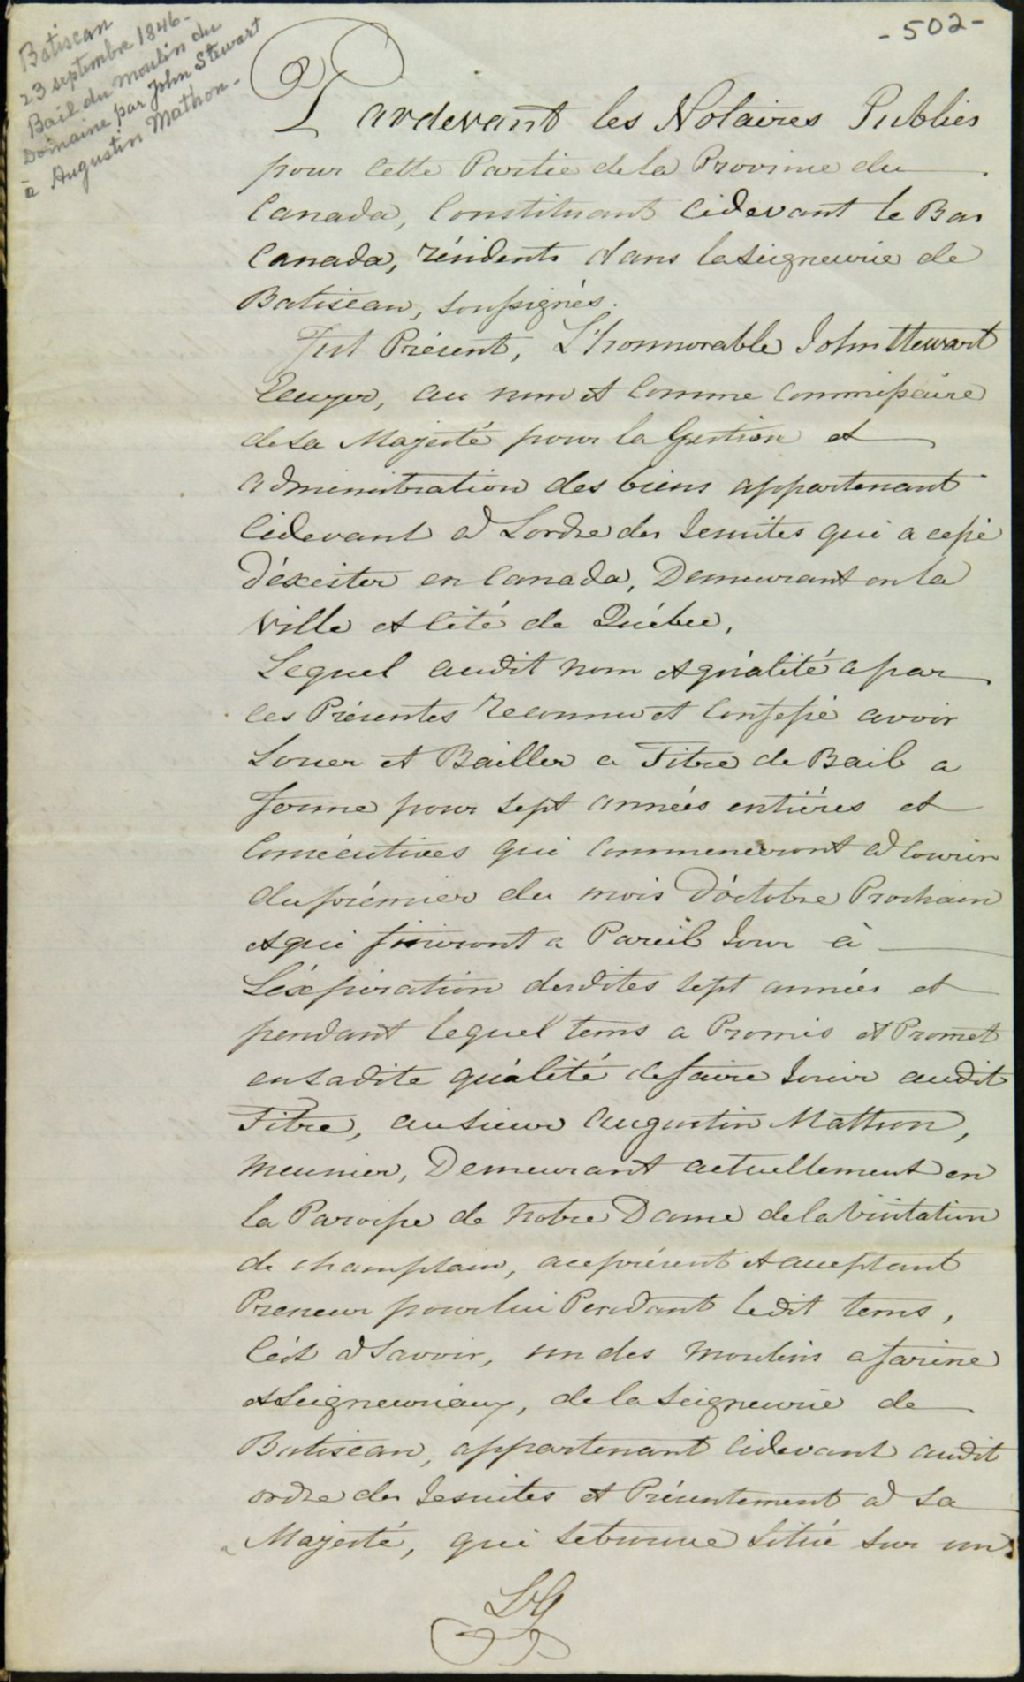 Batiscan
23 septembre 1846 -
Bail du moulin du
Domaine par John Stewart
à Augustin Mathon -
- 502 -
Pardevant les Notaires Publics
pour cette Partie de la Province du
Canada, Constituant Cidevant le Bas
Canada, résidents dans la Seigneurie de
Batiscan, soussignés.
Fut Présent, L'honnorable John Stewart
Ecuyer, au nom et Comme Commissaire
de Sa Majesté pour la Gestion et
administration des biens appartenant
Cidevant à Lordre des Jesuites qui a cessé
d'éxister en Canada, Demeurant en la
Ville et Cité de Québec,
Lequel audit nom et qualité a par
ces Présentes reconnu et Confessé avoir
Louer et Bailler a Titre de Bail a
ferme pour sept années entiéres et
Consécutives qui Commenceront à Courir
du prémier du mois D'octobre Prochain
et qui finiront a Pareil Jour à
L'éxpiration desdites sept années et
pendant lequel tems a Promis et Promet
en sadite qualité de faire Jouir audit
Titre, au Sieur Augustin Mathon,
Meunier, Demeurant actuellement en
la Paroisse de Notre Dame de la Visitation
de Champlain, aceprésent et acceptant
Preneur pour lui Pendant ledit tems,
C'est à Savoir, un des Moulins a farine
et Seigneuriaux, de la Seigneurie de
Batiscan, appartenant Cidevant audit
ordre des Jesuites et Présentement à Sa
Majesté, qui se trouve Situé sur un
LG